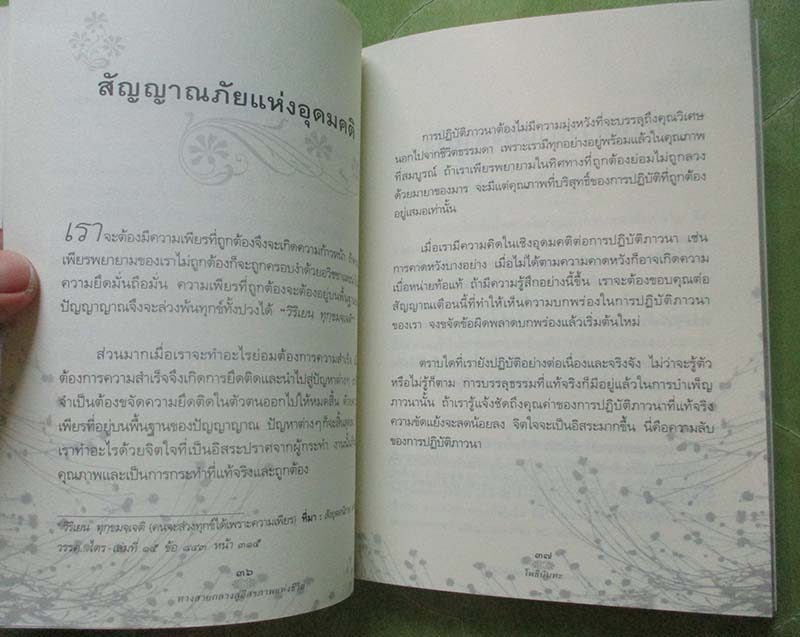 สัญญาณภัยแห่งอุดมคติ
เราจะต้องมีความเพียรที่ถูกต้องจึงจะเกิดความก้าวหน้า
เพียรพยายามของเราไม่ถูกต้องก็จะถูกครอบงำด้วยอวิชชาและ
ความยึดมั่นถือมั่น ความเพียรที่ถูกต้องจะต้องอยู่บนพื้นฐาน
ปัญญาญาณจึงจะล่วงพ้นทุกข์ทั้งปวงได้ "วิริเยน ทุกฺขมจฺเจติ"
ส่วนมากเมื่อเราจะทำอะไรย่อมต้องการความสำเร็จ
ต้องการความสำเร็จจึงเกิดการยึดติดและนำไปสู่ปัญหาต่างๆ
จำเป็นต้องขจัดความยึดติดในตัวตนออกไปให้หมดสิ้น
เพียรที่อยู่บนพื้นฐานของปัญญาญาณ ปัญหาต่างๆก็จะสิ้นสุด
เราทำอะไรด้วยจิตใจที่เป็นอิสระปราศจากผู้กระทำ
คุณภาพและเป็นการกระทำที่แท้จริงและถูกต้อง
"วิริเยน ทุกฺขมจฺเจติ (คนจะล่วงทุกข์ได้เพราะความเพียร) ที่มา :
วรรค. ไตร-เล่มที่ ๑๕ ข้อ ๘๔๓ หน้า ๓๑๕
๓๖
ทางสายกลางสู่อิสรภาพแห่งชีวิต
การปฏิบัติภาวนาต้องไม่มีความมุ่งหวังที่จะบรรลุถึงคุณวิเศษ
นอกไปจากชีวิตธรรมดา เพราะเรามีทุกอย่างอยู่พร้อมแล้วในคุณภาพ
ที่สมบูรณ์ ถ้าเราเพียรพยายามในทิศทางที่ถูกต้องย่อมไม่ถูกลวง
ด้วยมายาของมาร จะมีแต่คุณภาพที่บริสุทธิ์ของการปฏิบัติที่ถูกต้อง
อยู่เสมอเท่านั้น
เมื่อเรามีความคิดในเชิงอุดมคติต่อการปฏิบัติภาวนา เช่น
การคาดหวังบางอย่าง เมื่อไม่ได้ตามความคาดหวังก็อาจเกิดความ
เบื่อหน่ายท้อแท้ ถ้ามีความรู้สึกอย่างนี้ขึ้น เราจะต้องขอบคุณต่อ
สัญญาณเตือนนี้ที่ทำให้เห็นความบกพร่องในการปฏิบัติภาวนา
ของเรา จงขจัดข้อผิดพลาดบกพร่องแล้วเริ่มต้นใหม่
ตราบใดที่เรายังปฏิบัติอย่างต่อเนื่องและจริงจัง ไม่ว่าจะรู้ตัว
หรือไม่รู้ก็ตาม การบรรลุธรรมที่แท้จริงก็มีอยู่แล้วในการบำเพ็ญ
ภาวนานั้น ถ้าเรารู้แจ้งชัดถึงคุณค่าของการปฏิบัติภาวนาที่แท้จริง
ความขัดแย้งจะลดน้อยลง จิตใจจะเป็นอิสระมากขึ้น นี่คือความลับ
ของการปฏิบัติภาวนา
๓๗
โพธินันทะ